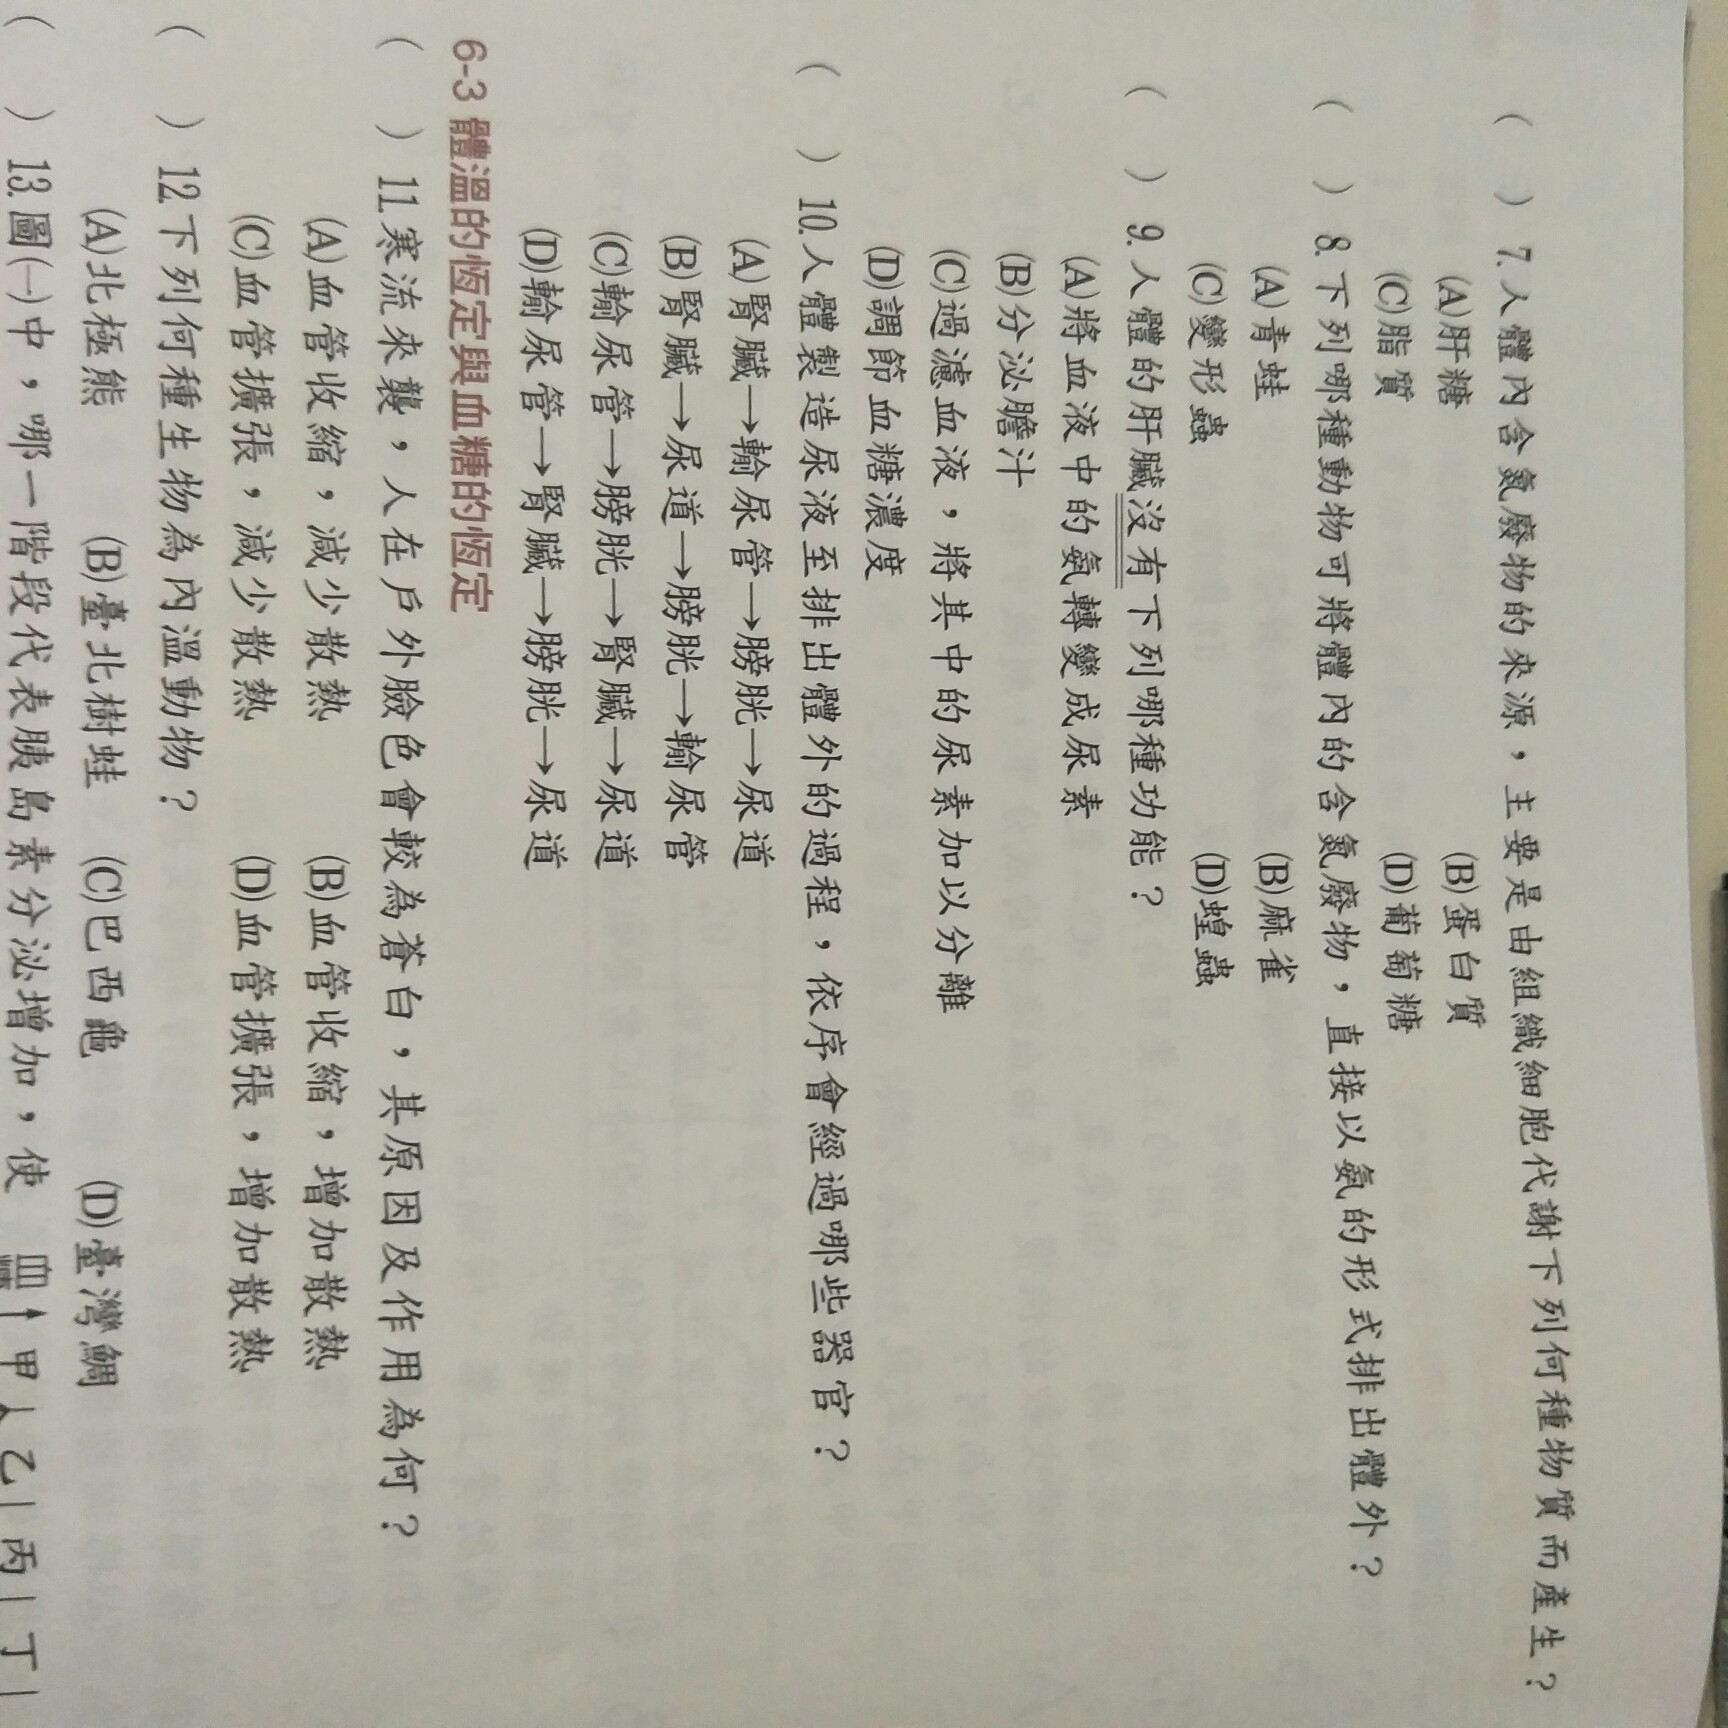 (　) 7.人體內含氮廢物的來源，主要是由組織細胞代謝下列何種物質而產生？
(A)肝糖　(B)蛋白質
(C)脂質　(D)葡萄糖
(　) 8.下列哪種動物可將體內的含氮廢物，直接以氨的形式排出體外？
(A)青蛙　(B)麻雀
(C)變形蟲　(D)蝗蟲
(　) 9.人體的肝臟沒有下列哪種功能？
(A)將血液中的氨轉變成尿素
(B)分泌膽汁
(C)過濾血液，將其中的尿素加以分離
(D)調節血糖濃度
(　) 10.人體製造尿液至排出體外的過程，依序會經過哪些器官？
(A)腎臟→輸尿管→膀胱→尿道
(B)腎臟→尿道→膀胱→輸尿管
(C)輸尿管→膀胱→腎臟→尿道
(D)輸尿管→腎臟→膀胱→尿道
6-3 體溫的恆定與血糖的恆定
(　) 11.寒流來襲，人在戶外臉色會較為蒼白，其原因及作用為何？
(A)血管收縮，減少散熱　(B)血管收縮，增加散熱
(C)血管擴張，減少散熱　(D)血管擴張，增加散熱
(　) 12.下列何種生物為內溫動物？
(A)北極熊　(B)臺北樹蛙　(C)巴西龜　(D)臺灣鯛
(　) 13.圖(一)中，哪一階段代表胰島素分泌增加，使
血 甲 乙 丙 丁